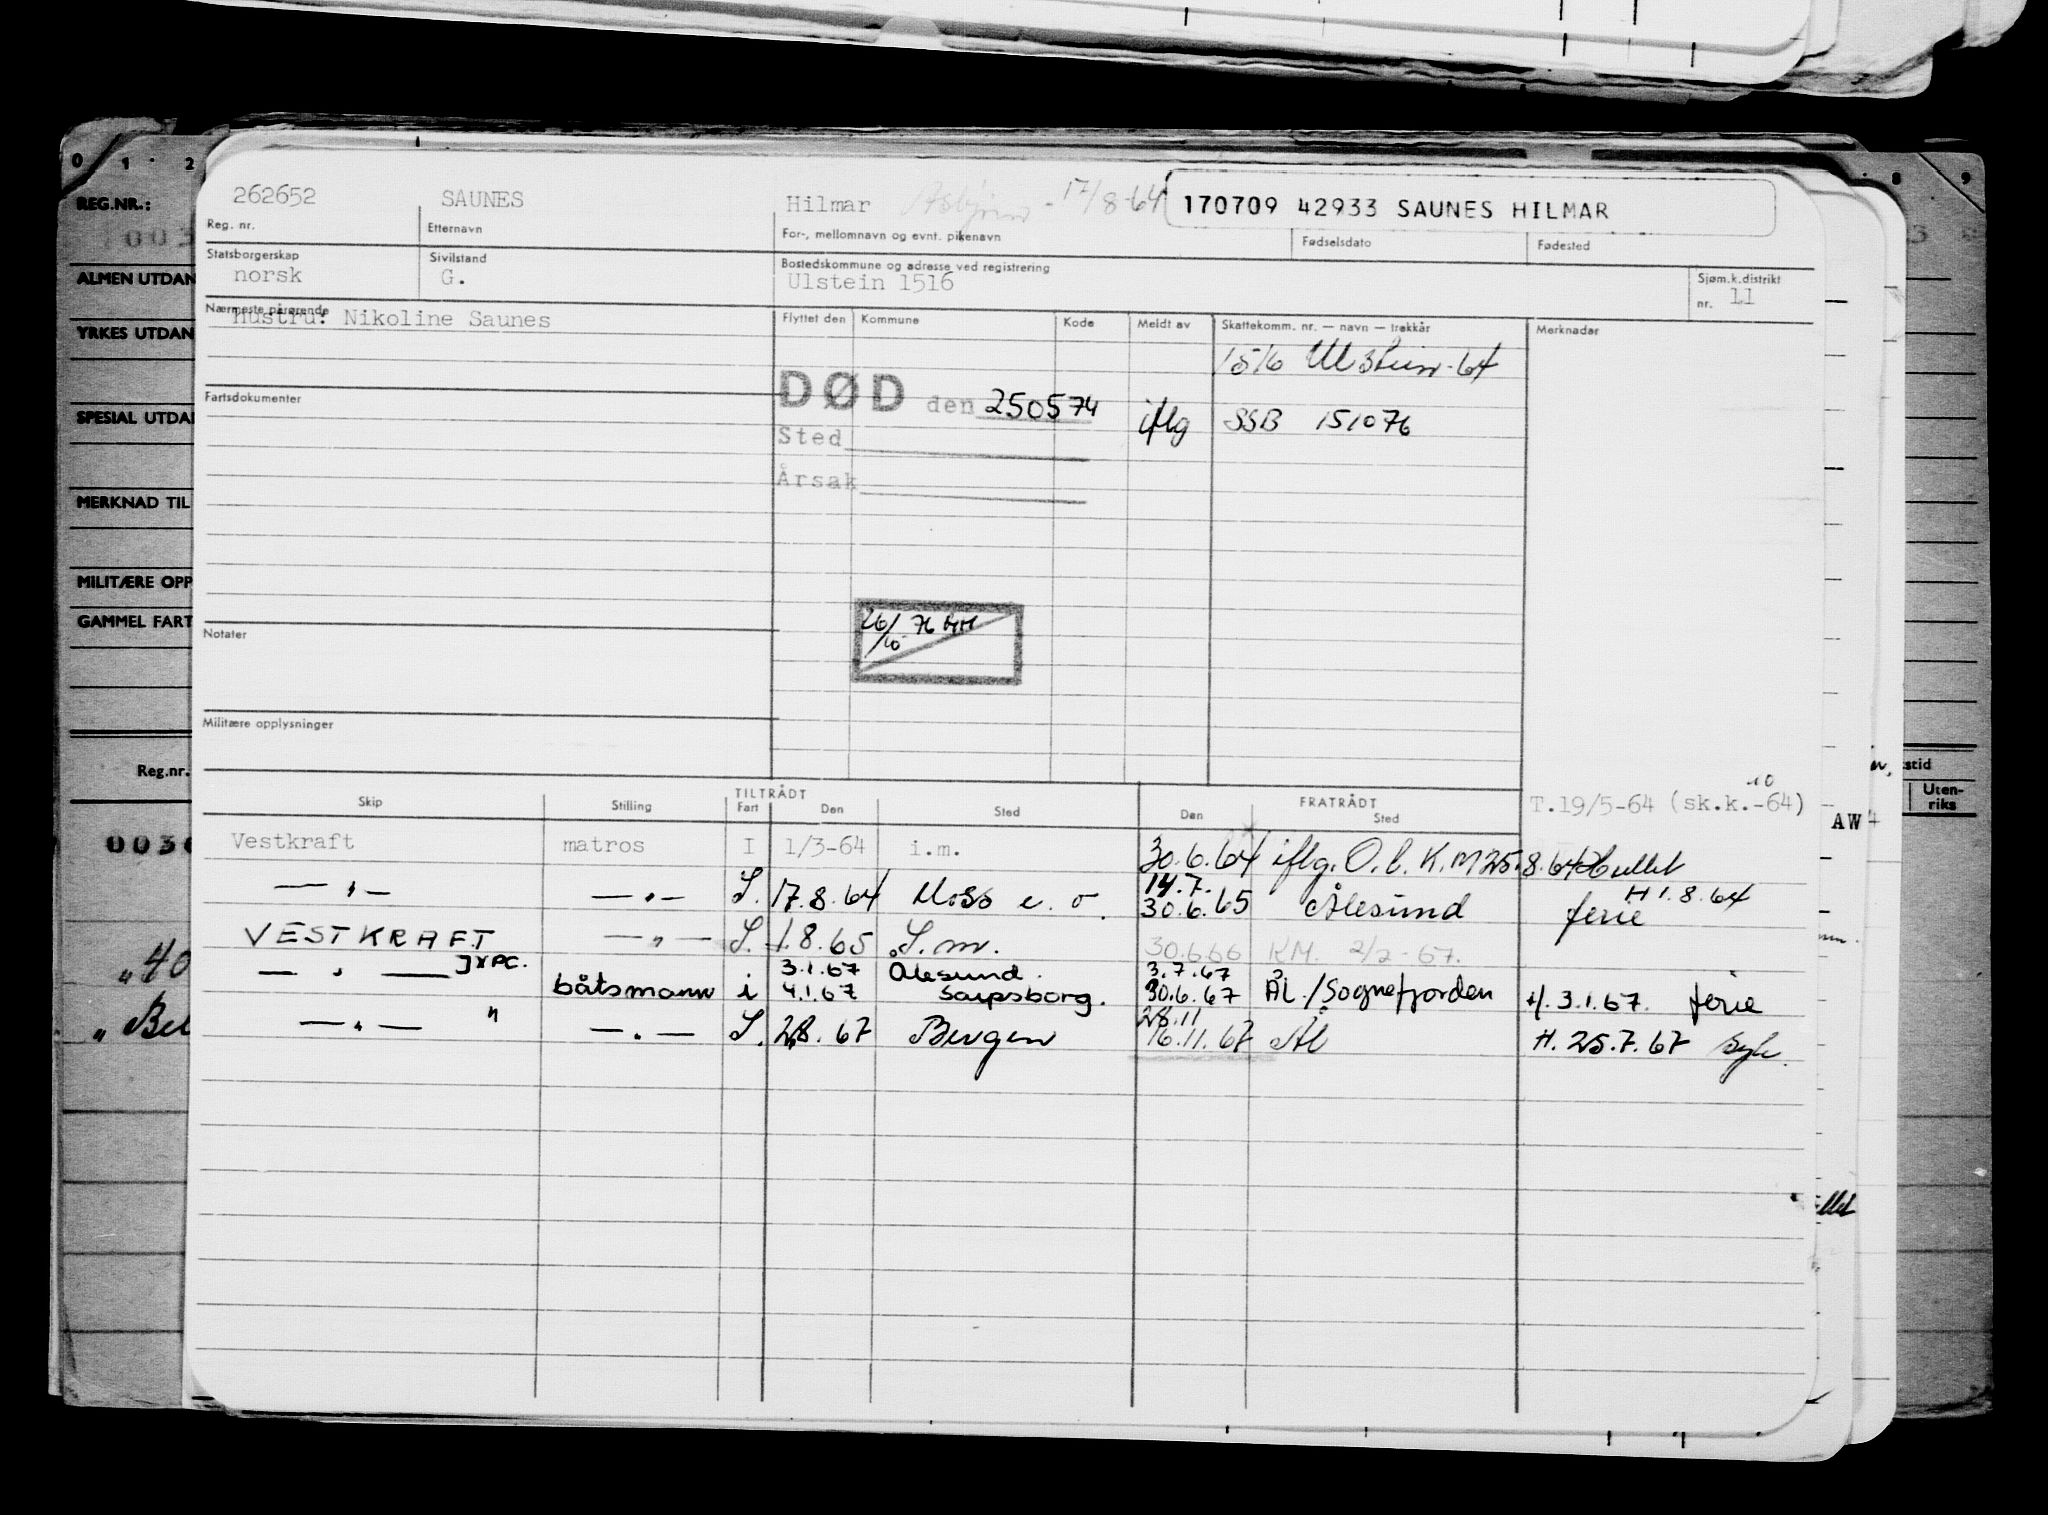 0 1 2 8 9
REG.NR.:
ALMEN UTDAN
YRKES UTDAN
SPESIAL UTDA
MERKNAD TIL
MILITÆRE OPP
GAMMEL FART
Reg.nr.
262652 SAUNES Hilmar 17/8-64 170709 42933 SAUNES HILMAR
Reg. nr. Etternavn For-, mellomnavn og evnt. pikenavn Fødselsdato Fødested
Statsborgerskap Sivilstand Bostedskommune og adresse ved registrering Sjøm.k.distrikt
norsk G. Ulstein 1516 nr. 11
Nærmeste pårørende Flyttet den Kommune Kode Meldt av Skattekomm. nr. — navn — trekkår Merknader
Hustru: Nikoline Saunes
1516 Ulstein-64
Fartsdokumenter
DØD den 250574 iflg SSB 151076
Sted
Årsak
26/10 76
Notater
Militære opplysninger
Skip Stilling TILTRÅDT Fart Den Sted FRATRÅDT Den Sted
T.19/5-64 (sk.k.-64)
10
Vestkraft matros I 1/3-64 i.m. 30.6.64 iflg. O.b. K.M 25.8.64
— " — — " — S. 17.8.64 Moss e.o. 14.7. 30.6.65 Ålesund H 1.8.64 ferie
VESTKRAFT — " — S. 1.8.65 S.m. 30.6.66 KM. 2/2-67.
— " — båtsmann i 3.1.67 Ålesund. 3.7.67
4.1.67 Sarpsborg. 30.6.67 ÅL./Sognefjorden H. 3.1.67. ferie
— " — " — " — S. 2.8.67 Bergen 28.11 16.11.67 Ål H. 25.7.67 syk.
stid
Uten-
riks
AW